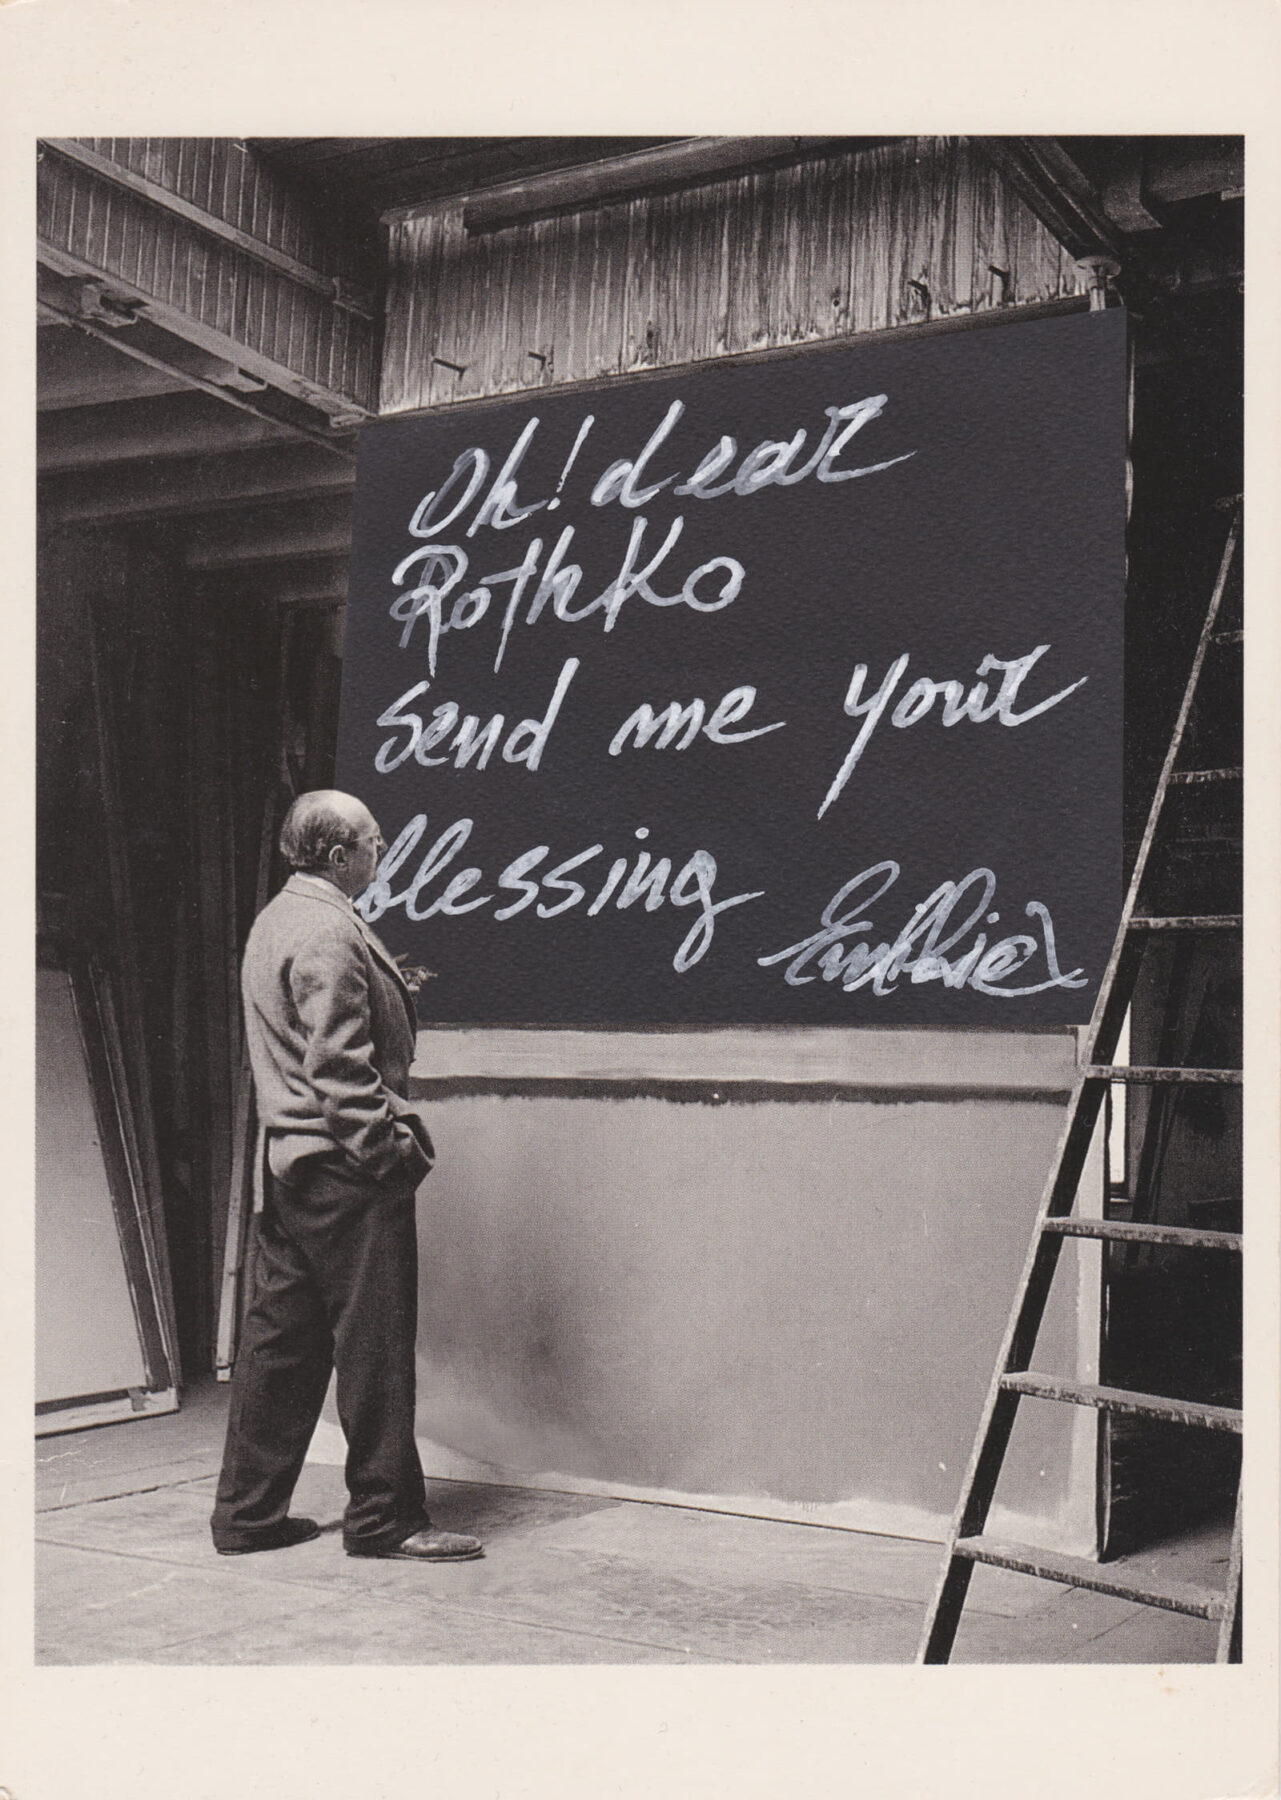 Oh! dear
Rothko
send me your
blessing